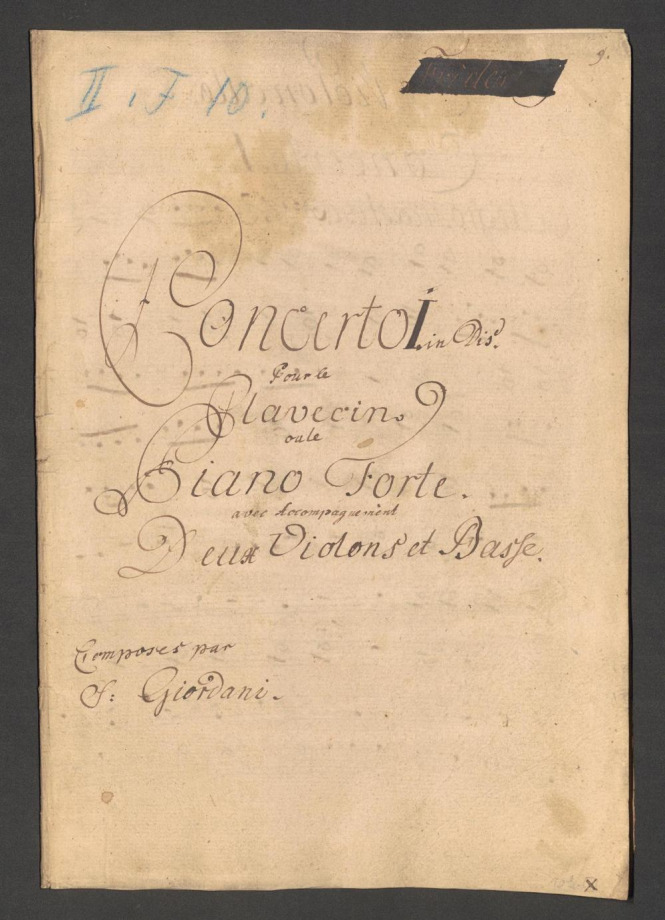 II. F 10.
9.
Concerto I. in Dis.
Pour le
Clavecin.
ou le
Piano Forte.
avec Accompagnement
Deux Violons et Basse.
Composes par
S: Giordani.
X